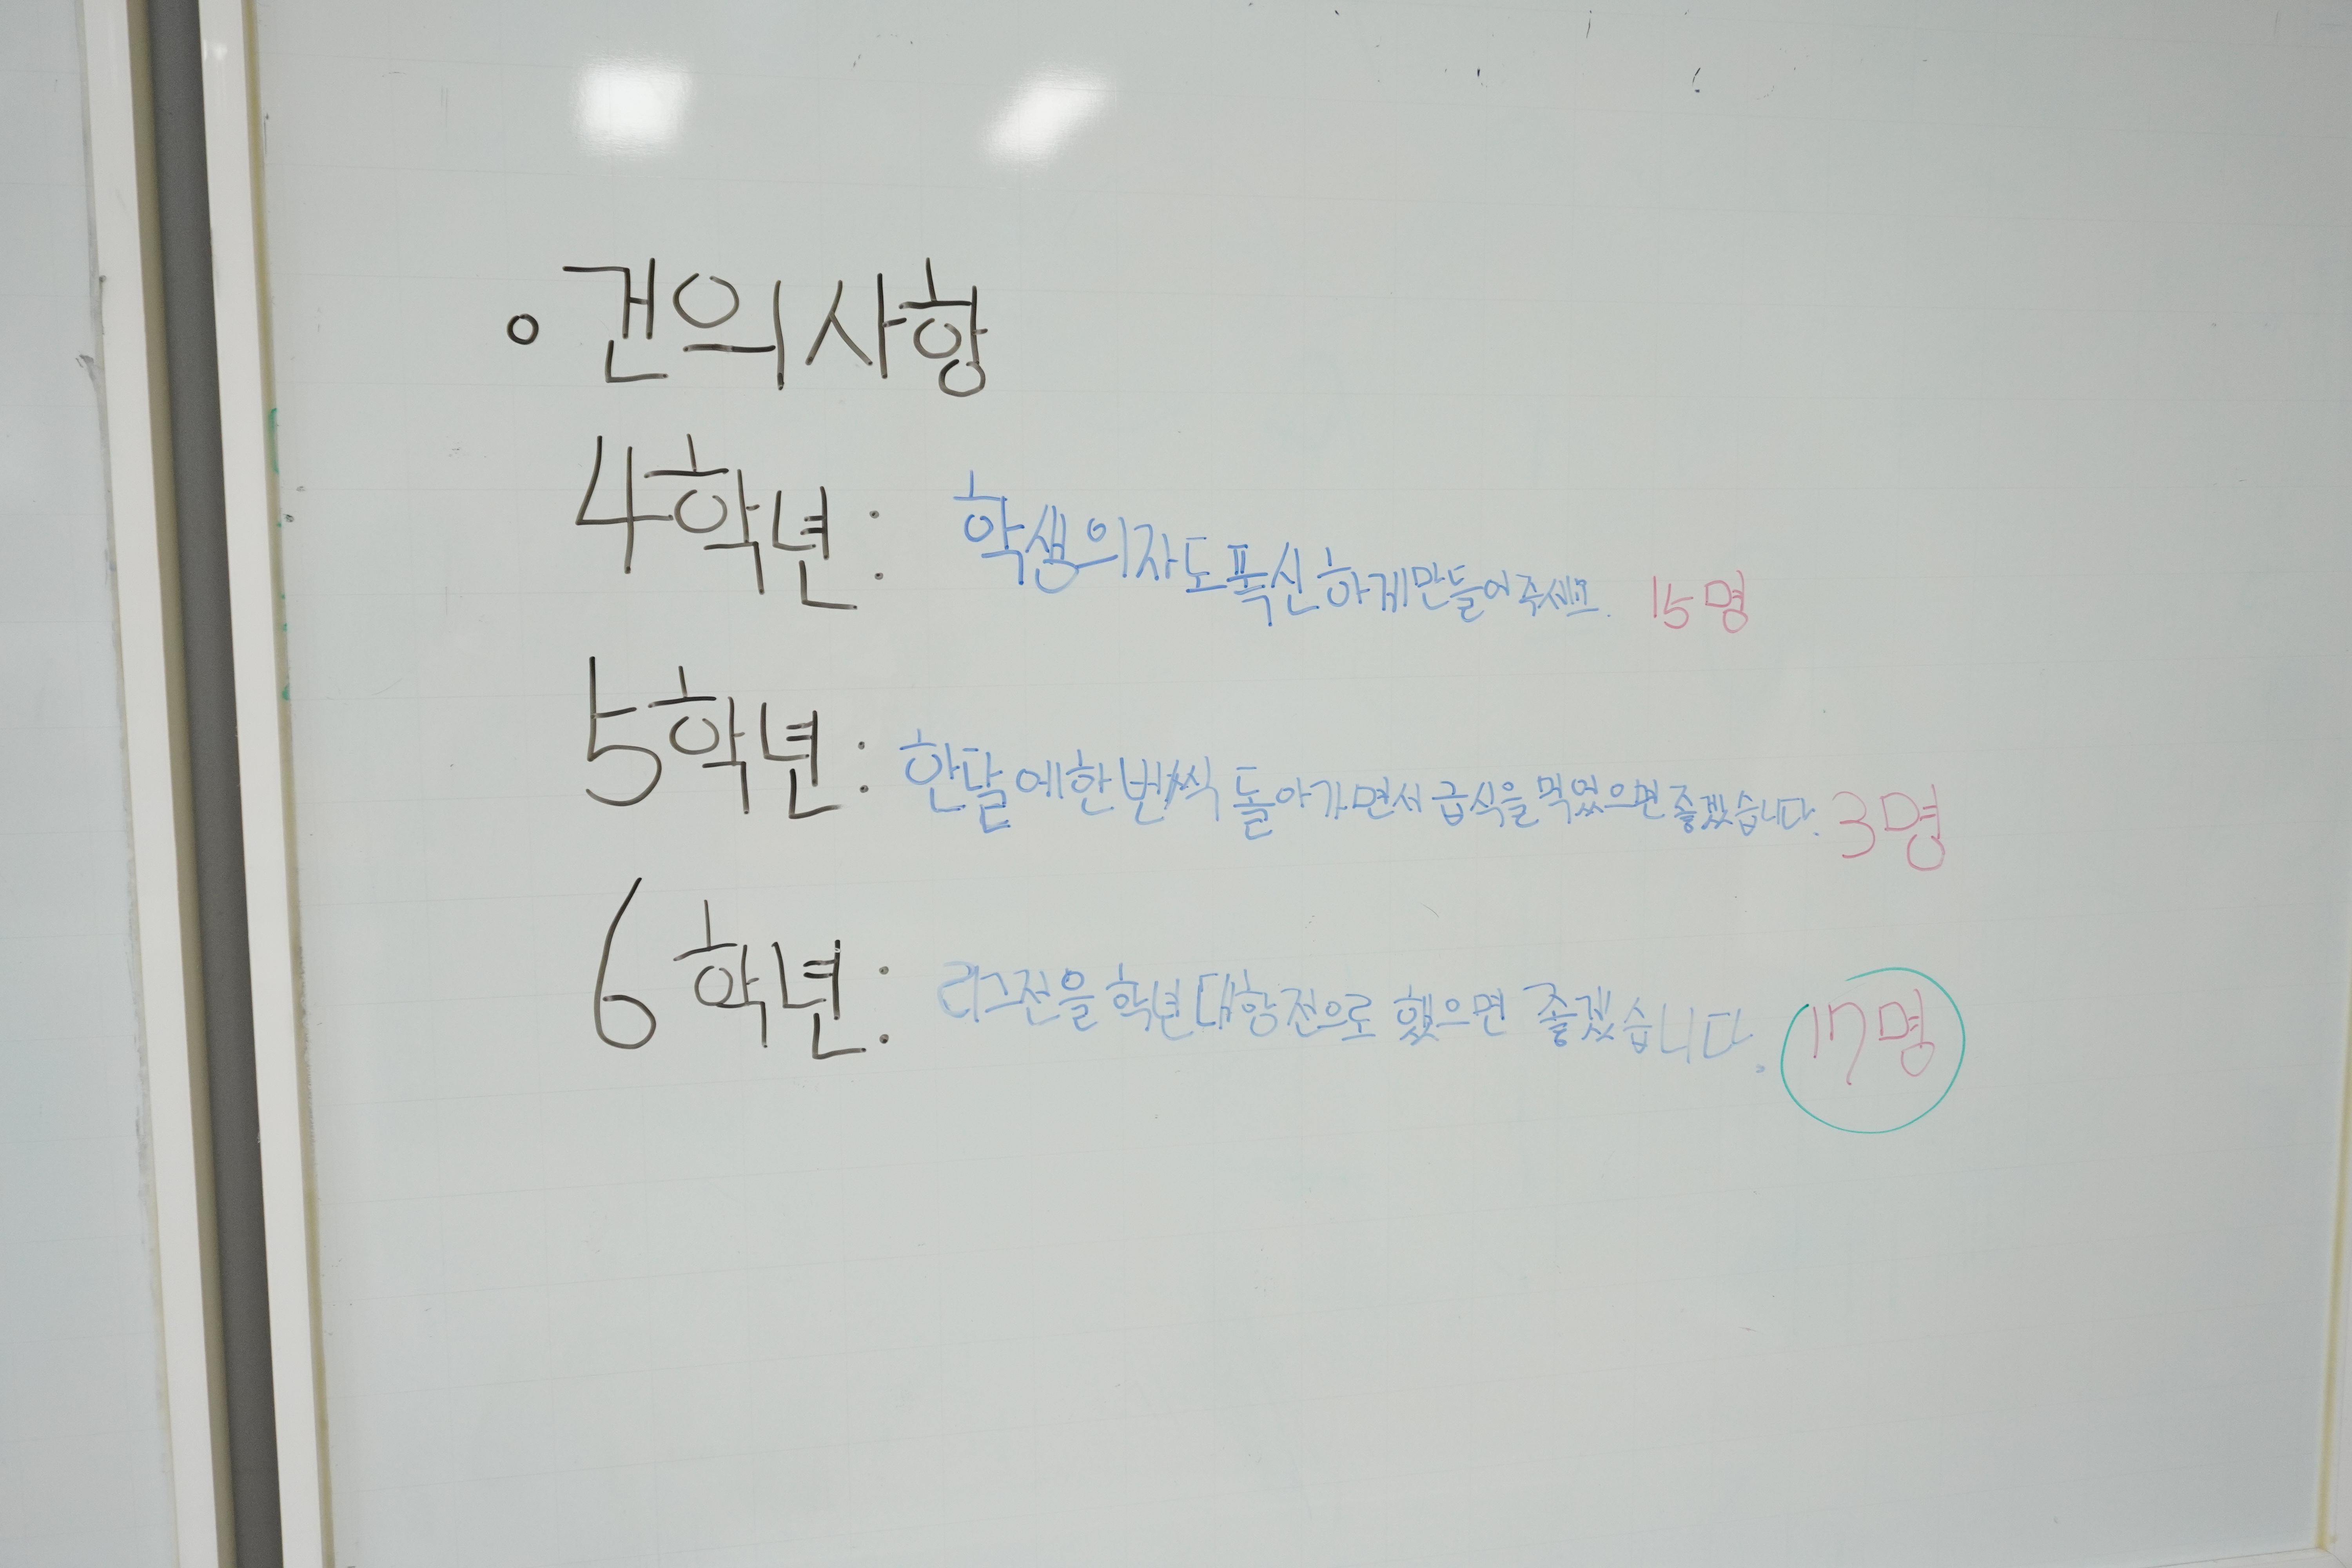 ◦ 건의사항
4학년: 학생의자도 폭신하게 만들어주세요. 15명
5학년: 한달에 한번씩 돌아가면서 급식을 먹었으면 좋겠습니다. 3명
6학년: 리그전을 학년대항전으로 했으면 좋겠습니다. 17명